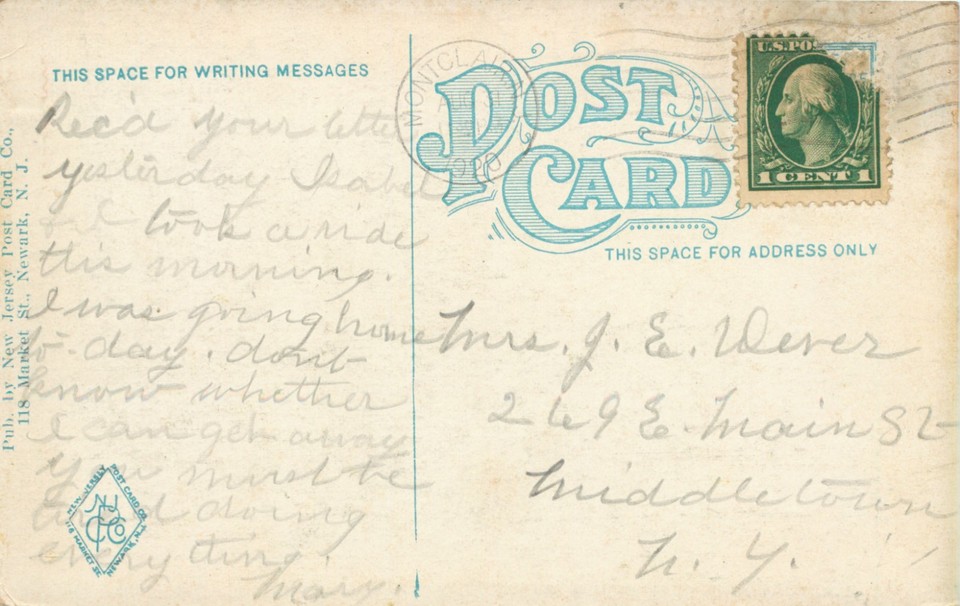 THIS SPACE FOR WRITING MESSAGES
Rec'd your letter
yesterday Isabel
& I took a ride
this morning.
I was going home
to-day. don't
know whether
I can get away
You must be
tired doing
everything.
Mary.
Pub. by New Jersey Post Card Co.,
118 Market St., Newark, N. J.
NEW JERSEY POST CARD CO.
118 MARKET ST. NEWARK, N.J.
NJ
PCCo
MONTCLAIR
1920
POST
CARD
U.S. PO
1 CENT 1
THIS SPACE FOR ADDRESS ONLY
Mrs. J. E. Wever
269 E. Main St
Middletown
N. Y.